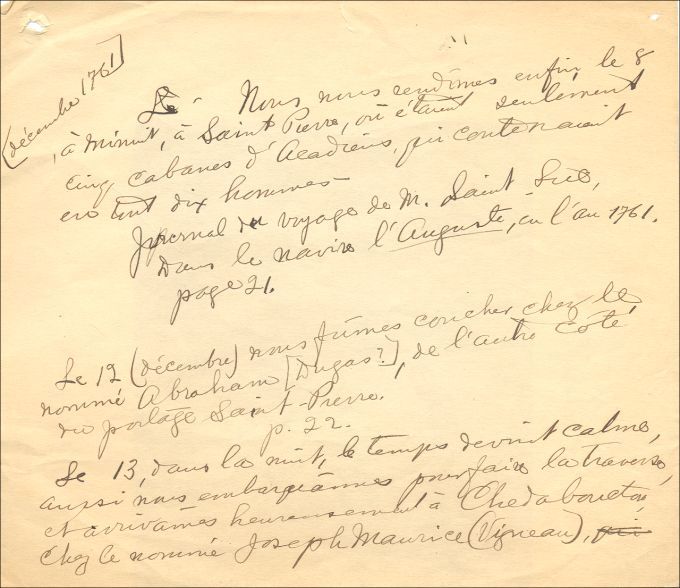 [décembre 1761]
Le Nous nous rendîmes enfin, le 8
, à minuit, à Saint Pierre, où étaient seulement
cinq cabanes d'Acadiens, qui contenaient
en tout dix hommes —
Journal du voyage de M. Saint-Luc,
Dans le navire l'Auguste, en l'an 1761.
page 21.
Le 12 (décembre) nous fûmes coucher chez le
nommé Abraham [Dugas?], de l'autre côté
du portage Saint-Pierre.
p. 22.
Le 13, dans la nuit, le temps devint calme,
aussi nous embarquâmes pour faire la traverse,
et arrivâmes heureusement à Chedabouctou,
chez le nommé Joseph Maurice (Vigneau), qui